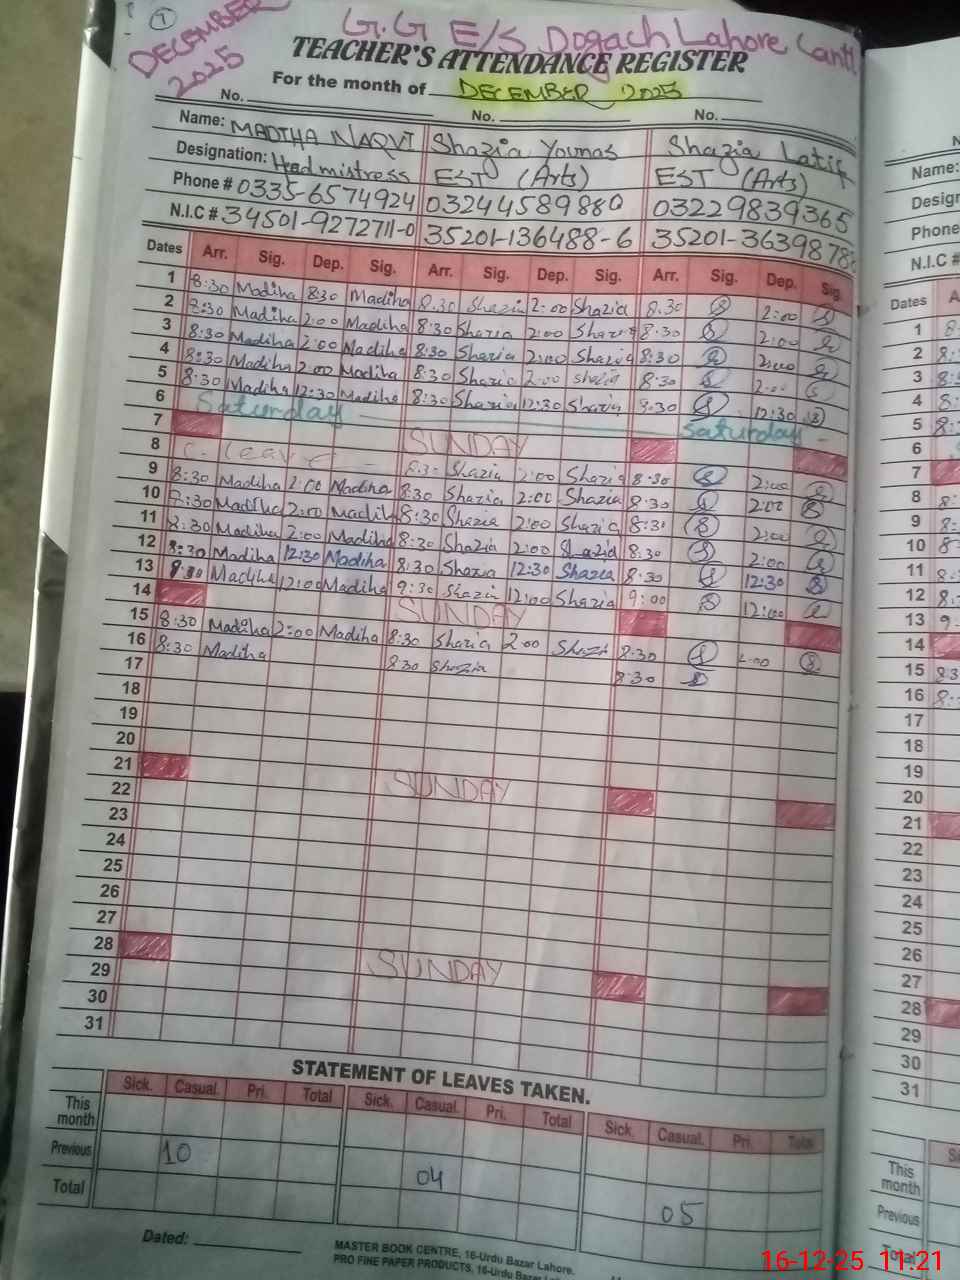 7
G.G E/S Dogach Lahore Cantt
DECEMBER
2025
TEACHER'S ATTENDANCE REGISTER
For the month of DECEMBER 2025
No. No. No.
Name: MADIHA NAQVI Shazia Younas Shazia Latif
Designation: Headmistress EST (Arts) EST (Arts)
Phone # 0335-6574924 03244589880 03229839365
N.I.C # 34501-9272711-0 35201-136488-6 35201-3639878
Dates Arr. Sig. Dep. Sig. Arr. Sig. Dep. Sig. Arr. Sig. Dep. Sig.
1 8:30 Madiha 8:30 Madiha 8:30 Shazia 2:00 Shazia 8:30 2:00
2 8:30 Madiha 2:00 Madiha 8:30 Shazia 2:00 Shazia 8:30 2:00
3 8:30 Madiha 2:00 Madiha 8:30 Shazia 2:00 Shazia 8:30 2:00
4 8:30 Madiha 2:00 Madiha 8:30 Shazia 2:00 Shazia 8:30 2:00
5 8:30 Madiha 12:30 Madiha 8:30 Shazia 12:30 Shazia 12:30
6 Saturday Saturday
7 SUNDAY
8 C. Leave 8:30 Shazia 2:00 Shazia 8:30 2:00
9 8:30 Madiha 2:00 Madiha 8:30 Shazia 2:00 Shazia 8:30
10 8:30 Madiha 2:00 Madiha 8:30 Shazia 2:00 Shazia 8:30 2:00
11 8:30 Madiha 2:00 Madiha 8:30 Shazia 2:00 Shazia 8:30 2:00
12 8:30 Madiha 12:30 Madiha 8:30 Shazia 12:30 Shazia 8:30 12:30
13 Madiha 12:00 Madiha 9:30 Shazia 12:00 Shazia 9:00 12:00
14 SUNDAY
15 8:30 Madiha 2:00 Madiha 8:30 Shazia 2:00 Shazia 8:30 2:00
16 8:30 Madiha 8:30 Shazia 8:30
17
18
19
20
21 SUNDAY
22
23
24
25
26
27
28 SUNDAY
29
30
31
STATEMENT OF LEAVES TAKEN.
Sick. Casual. Pri. Total Sick. Casual. Pri. Total Sick. Casual. Pri. Total
This month
Previous 10 04 05
Total
Dated:
MASTER BOOK CENTRE, 16-Urdu Bazar Lahore.
PRO FINE PAPER PRODUCTS, 16-Urdu Bazar
Name:
Phone
N.I.C #
Dates
1
2
3
4
5
6
7
8
9
10
11
12
13
14
15
16
17
18
19
20
21
22
23
24
25
26
27
28
29
30
31
This month
Previous
Total
16-12-25 11:21